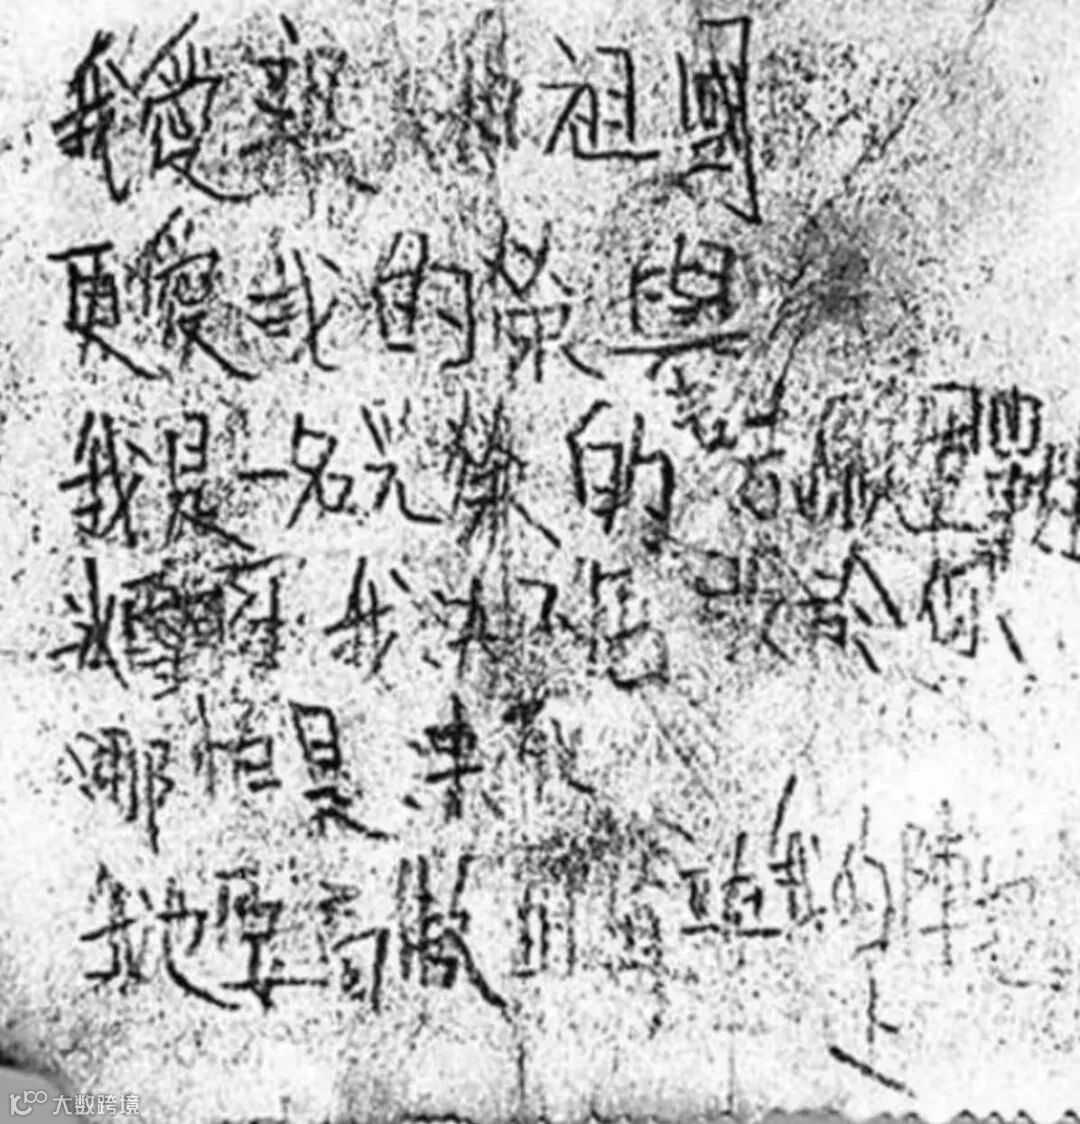 我愛親 祖國
更愛我的榮譽
我是一名光榮的志願軍
冰雪啊我決不 你
哪怕是凍死
我也要高傲 立在我的陣地上
大数跨境